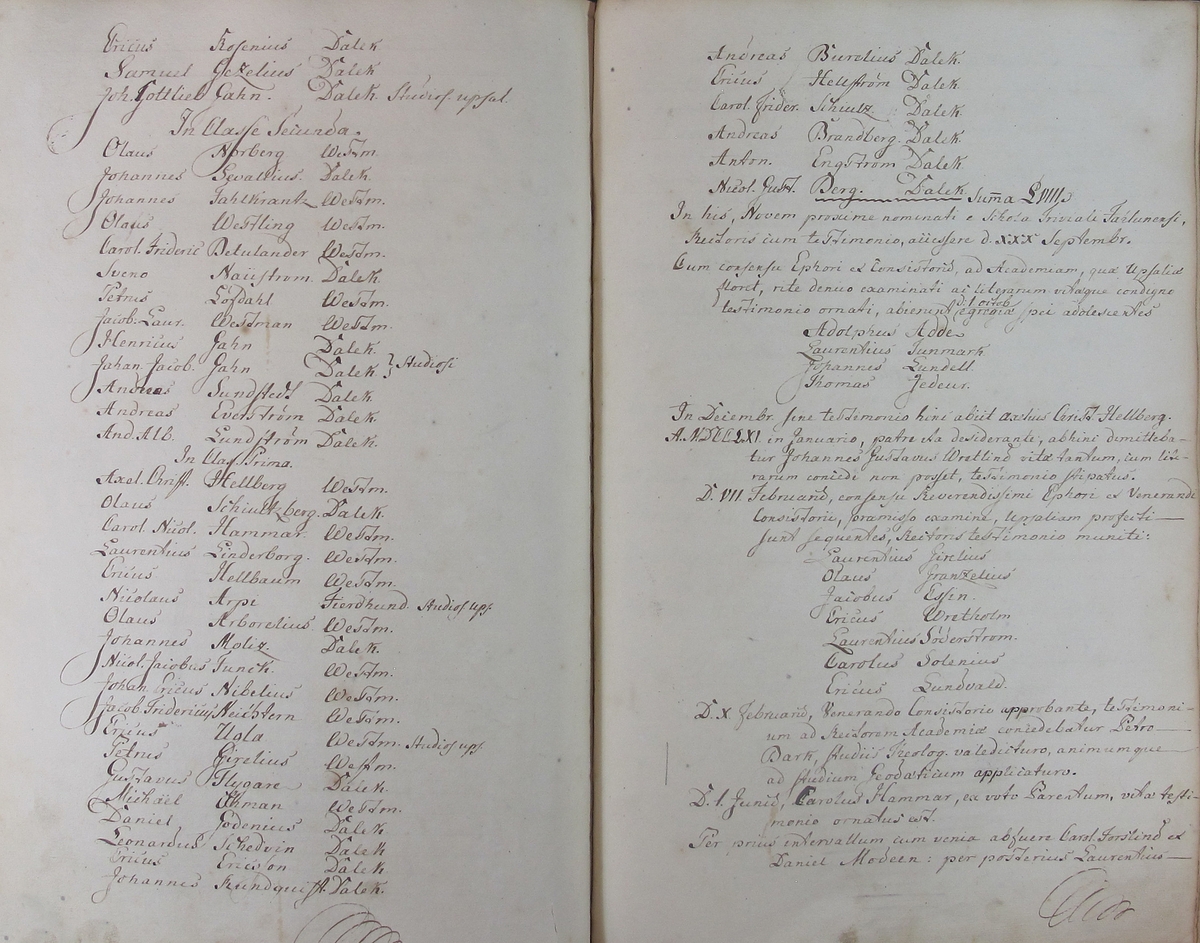 Ericus Rosenius Dalek
Samuel Gezelius Dalek
Joh. Gottlieb Gahn. Dalek. Studios. upsal.
In Classe Secunda.
Olaus Norberg Westm.
Johannes Sevallius. Dalek.
Johannes Fahlkrantz Westm.
Olaus Westling Westm.
Carol. Frideric Petulander Westm.
Sveno Nauström. Dalek.
Petrus Löfdahl Westm.
Jacob. Laur. Westman Westm.
Henricus Gahn Dalek.
Johan. Jacob. Gahn Dalek } Studiosi
Andreas Sundstedt Dalek.
Andreas Everström Dalek.
And. Alb. Lundström Dalek.
In Class. Prima.
Axel. Christ. Hellberg Westm.
Olaus Schiultzberg. Dalek.
Carol. Nicol. Hammar. Westm.
Laurentius Linderborg. Westm.
Ericus Hellbaum Westm.
Nicolaus Arpi Fierdhund. Studios. ups.
Olaus Arborelius Westm.
Johannes Molitz. Dalek.
Nicol. Jacobus Junck. Westm.
Johan. Ericus Nibelius Westm.
Jacob. Fridericus Neichtern Westm.
Ericus Ugla Westm. Studios. ups.
Petrus Girelius Westm.
Gustavus Flygare Dalek.
Michaël Öhman Westm.
Daniel Godenius Dalek
Leonardus Schedvin Dalek
Ericus Ericsson Dalek
Johannes Rundquist. Dalek.
Andreas Burelius Dalek.
Ericus Hellström Dalek.
Carol. Frider. Schultz Dalek.
Andreas Brandberg. Dalek.
Anton. Engström Dalek.
Nicol. Gust. Berg. Dalek Sum̄a LVIII.
In his, Novem proxime nominati e Schola Triviali Fahlunensi,
Rectoris cum testimonio, accessere d. XXX Septembr.
Cum consensu Ephori et Consistorii, ad Academiam, quæ Upsaliæ
floret, rite denuo examinati ac literarum vitæque condigno
testimonio ornati, abierunt d. 1 octob. egregiæ spei adolescentes
Adolphus Adde
Laurentius Junmark
Johannes Lundell
Thomas Jedeur.
In Decembr. sine testimonio hinc abiit Axelius Christ. Hellberg.
A. MDCCLXI in Januario, patre ita desiderante, abhinc dimitteba-
tur Johannes Gustavus Wretlind vitæ tantum, cum lite-
rarum concedi non posset, testimonio stipatus.
D. VII Februarii, consensu Reverendissimi Ephori et Venerandi
Consistorii, præmisso examine, Upsaliam profecti
sunt sequentes, Rectoris testimonio muniti:
Laurentius Girelius
Olaus Franzelius
Jacobus Essen.
Ericus Wretholm
Laurentius Söderstrom.
Carolus Solenius
Ericus Lundvald.
D. X Februarii, Venerando Consistorio approbante, testimoni-
um ad Rectorem Academiæ concedebatur Petro
Bark, studiis theolog. valedicturo, animumque
ad studium Geodæticum applicaturo.
D. 1. Junii, Carolus Hammar, ex voto Parentum, vitæ testi-
monio ornatus est.
Per prius intervallum cum venia abfuere Carol. Forslind et
Daniel Modeen: per posterius Laurentius